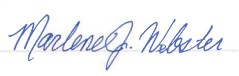 Marlene J. Webster